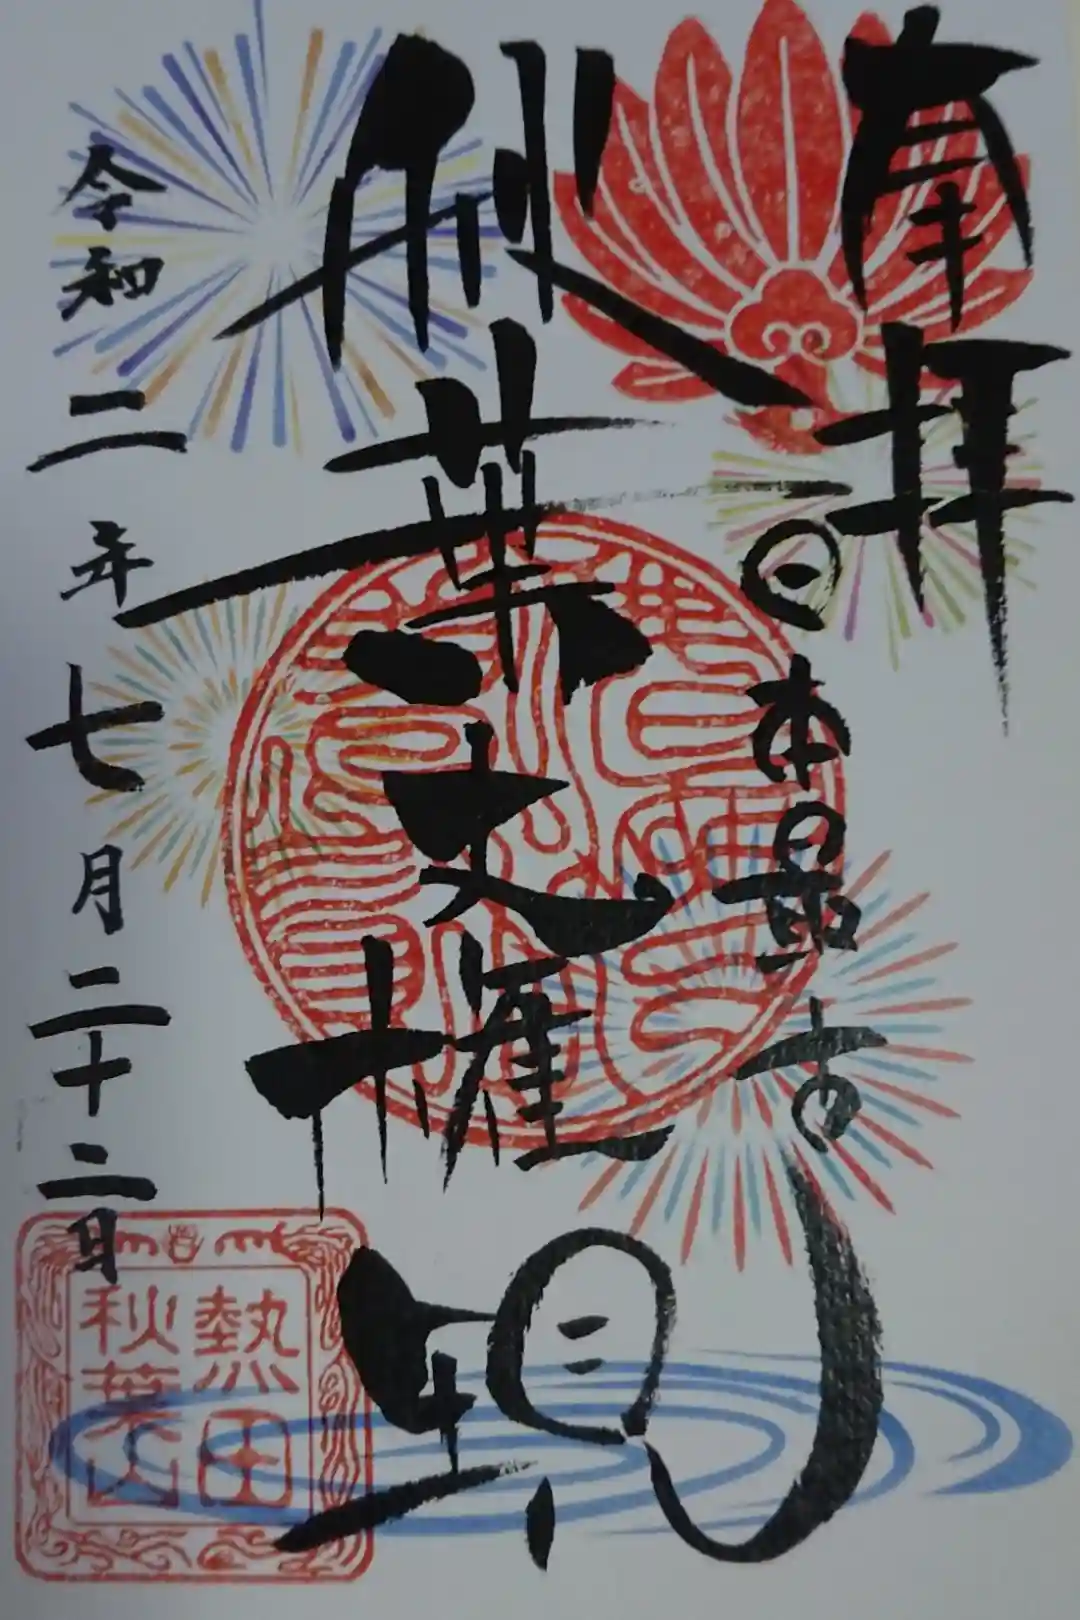 奉拝
日本最古
秋葉大権現
令和二年七月二十二日
熱田
秋葉山